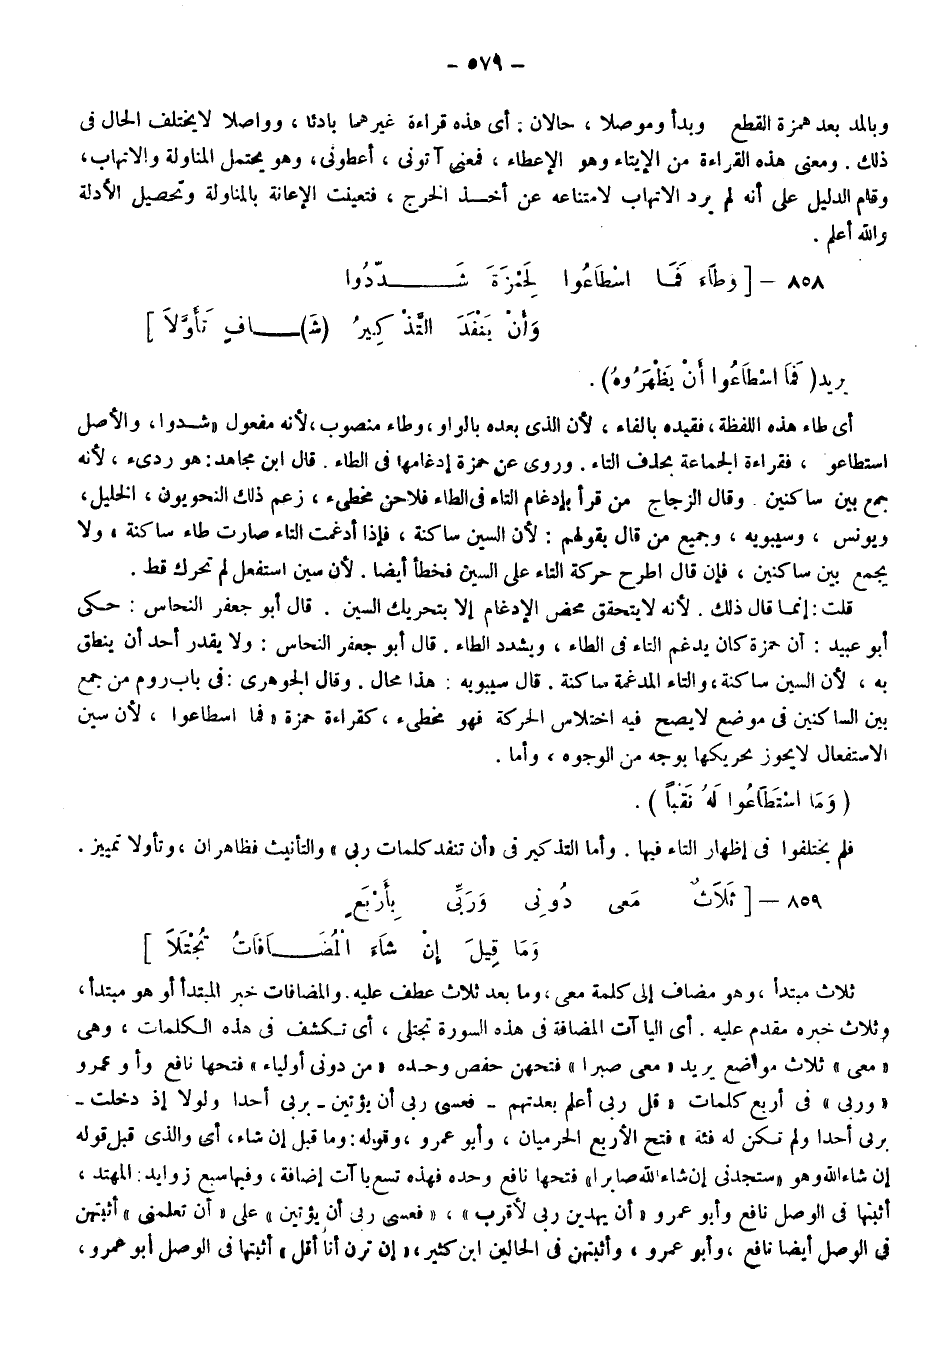 - ٥٧٩ -
وبالمد بعد همزة القطع وبدأ وموصلا ، حالان : أى هذه قراءة غيرهما بادئا ، وواصلا لايختلف الحال فى
ذلك . ومعنى هذه القراءة من الإيتاء وهو الإعطاء ، فمعنى آتونى ، أعطونى، وهو يحتمل المناولة والاتهاب،
وقام الدليل على أنه لم يرد الاتهاب لامتناعه عن أخـــذ الخرج ، فتعينت الإعانة بالمناولة وتحصيل الأدلة
والله أعلم .
٨٥٨ - [ وَطَاءَ فَمَا اسْطَاعُوا لِحَمْزَةَ شَـــــدَّدُوا
وَأَنْ يَنْفَدَ التَّذْكِيرُ (شَـ)ــــافٍ تَأَوَّلَا ]
يريد( فَمَا اسْطَاعُوا أَنْ يَظْهَرُوهُ) .
أى طاء هذه اللفظة، فقيده بالفاء ، لأن الذى بعده بالواو ، وطاء منصوب، لأنه مفعول «شـدوا، والأصل
استطاعو ، فقراءة الجماعة بحذف التاء . وروى عن حمزة إدغامها فى الطاء . قال ابن مجاهد: هو ردىء ، لأنه
جمع بين ساكنين . وقال الزجاج من قرأ بإدغام التاء فى الطاء فلاحن مخطىء ، زعم ذلك النحويون ، الخليل،
ويونس ، وسيبويه ، وجميع من قال بقولهم : لأن السين ساكنة ، فإذا أدغمت التاء صارت طاء ساكنة ، ولا
يجمع بين ساكنين ، فإن قال اطرح حركة التاء على السين فخطأ أيضا . لأن سين استفعل لم تحرك قط .
قلت : إنما قال ذلك . لأنه لايتحقق محض الإدغام إلا بتحريك السين . قال أبو جعفر النحاس : حـكى
أبو عبيد : أن حمزة كان يدغم التاء فى الطاء ، ويشدد الطاء . قال أبو جعفر النحاس : ولا يقدر أحد أن ينطق
به ، لأن السين ساكنة ، والتاء المدغمة ساكنة . قال سيبويه : هذا محال . وقال الجوهرى : فى باب روم من جمع
بين الساكنين فى موضع لايصح فيه اختلاس الحركة فهو مخطىء ، كقراءة حمزة « فما اسطاعوا ، لأن سين
الاستفعال لايجوز تحريكها بوجه من الوجوه ، وأما .
( وَمَا اسْتَطَاعُوا لَهُ نَقْباً ) .
فلم يختلفوا فى إظهار التاء فيها . وأما التذكير فى «أن تنفد كلمات ربى » والتأنيث فظاهران ، وتأولا تمييز .
٨٥٩ - [ ثَلَاثٌ مَعى دُونِى وَرَبِّى بِأَرْبَعٍ
وَمَا قِيلَ إِنْ شَاءَ الْمُضَـــافَاتُ تُجْتَلَا ]
ثلاث مبتدأ ، وهو مضاف إلى كلمة معى ، وما بعد ثلاث عطف عليه. والمضافات خبر المبتدأ أو هو مبتدأ،
وثلاث خبره مقدم عليه . أى اليا آت المضافة فى هذه السورة تجتلى ، أى تـكشف فى هذه الكلمات ، وهى
« معى » ثلاث مواضع يريد « معى صبرا » فتحهن حفص وحـده « من دونى أولياء » فتحها نافع وأ و عمرو
« وربى » فى أربع كلمات « قل ربى أعلم بعدتهم - فعسى ربى أن يؤتين - بربى أحدا ولولا إذ دخلت -
بربى أحدا ولم تـكن له فئة » فتح الأربع الحرميان ، وأبو عمرو ، وقوله: وما قبل إن شاء، أى والذى قبل قوله
إن شاء الله وهو «ستجدنى إن شاء الله صابرا» فتحها نافع وحده فهذه تسع يا آت إضافة، وفيها سبع زوايد: المهتد ،
أثبتها فى الوصل نافع وأبو عمرو « أن يهدين ربى لأقرب » ، « فعسى ربى أن يؤتين » على « أن تعلمنى » أثبتهن
فى الوصل أيضا نافع ، وأبو عمرو ، وأثبتهن فى الحالين ابن كثير، « إن ترن أنا أقل » أثبتها فى الوصل أبو عمرو،